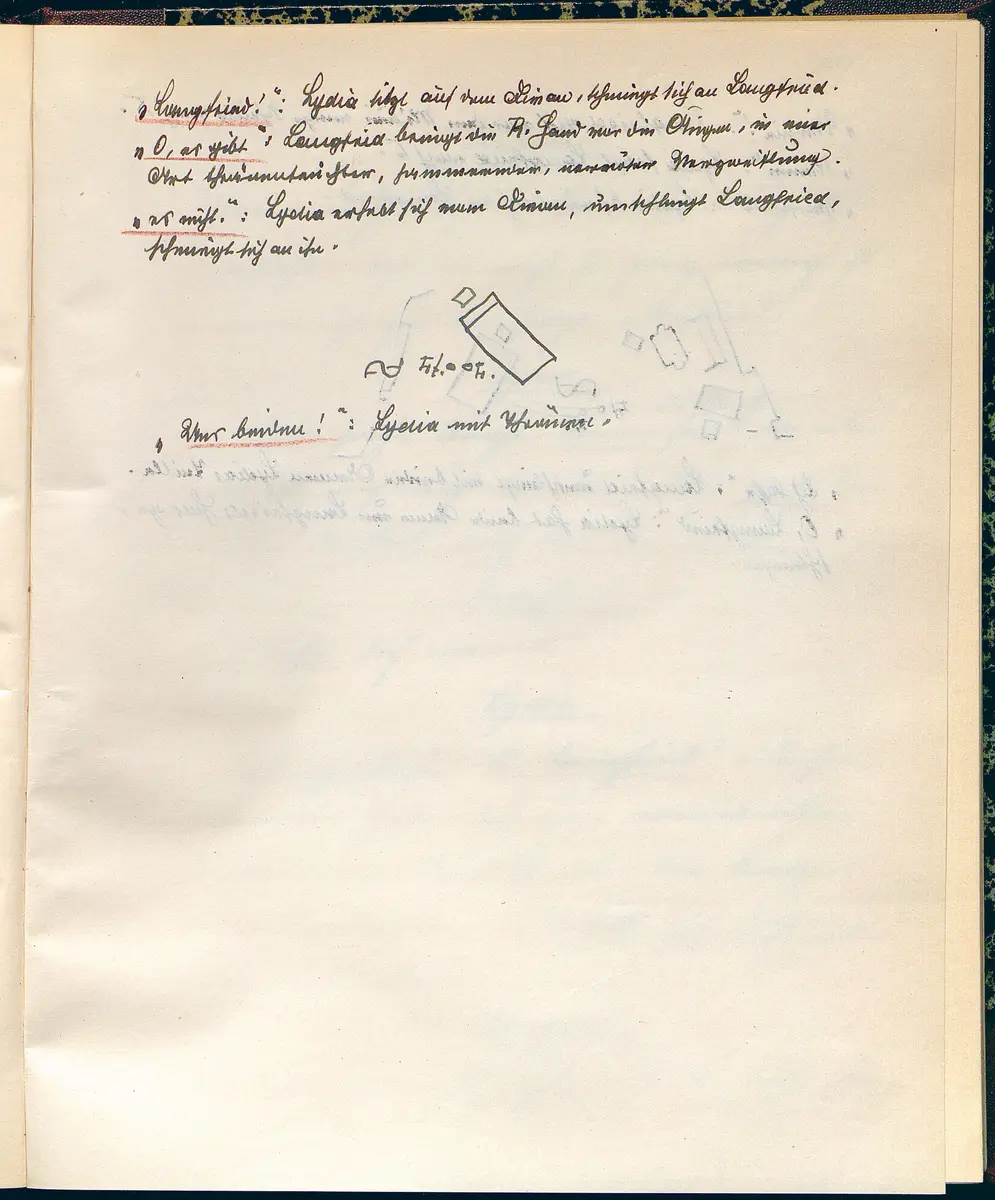 „Langfried!“: Lydia sitzt auf dem Divan, schmiegt sich an Langfried.
„O, es gibt“: Langfried beugt die R. Hand vor die Augen, in einer
Art thränenfeuchter, jammernder, nervöser Verzweiflung.
„es nicht.“: Lydia erhebt sich vom Divan, umschlingt Langfried,
schmiegt sich an ihn.
„Uns beiden!“: Lydia mit Thränen.